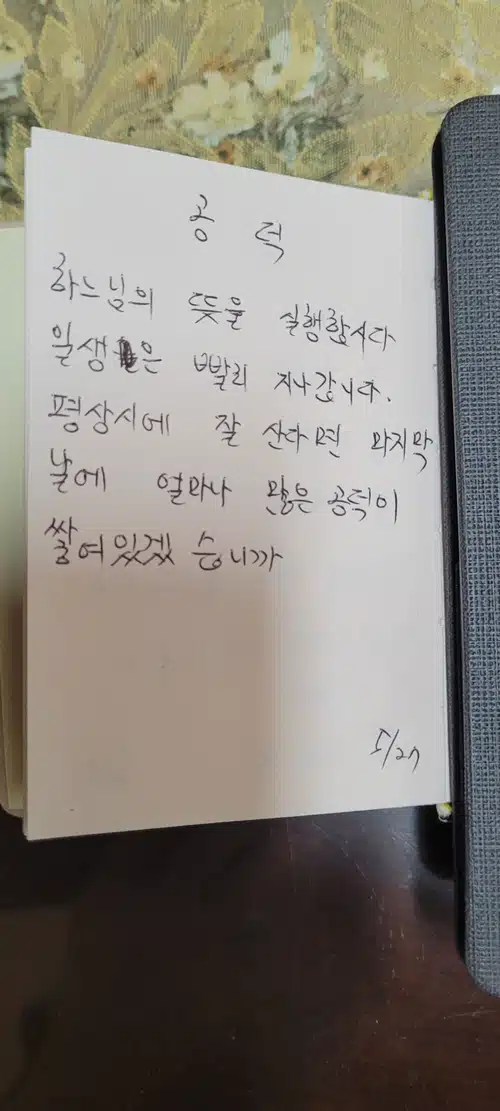 공 덕
하느님의 뜻을 실행합시다
일생은 빨리 지나갑니다.
평상시에 잘 산다면 마지막
날에 얼마나 많은 공덕이
쌓여있겠습니까
5/27